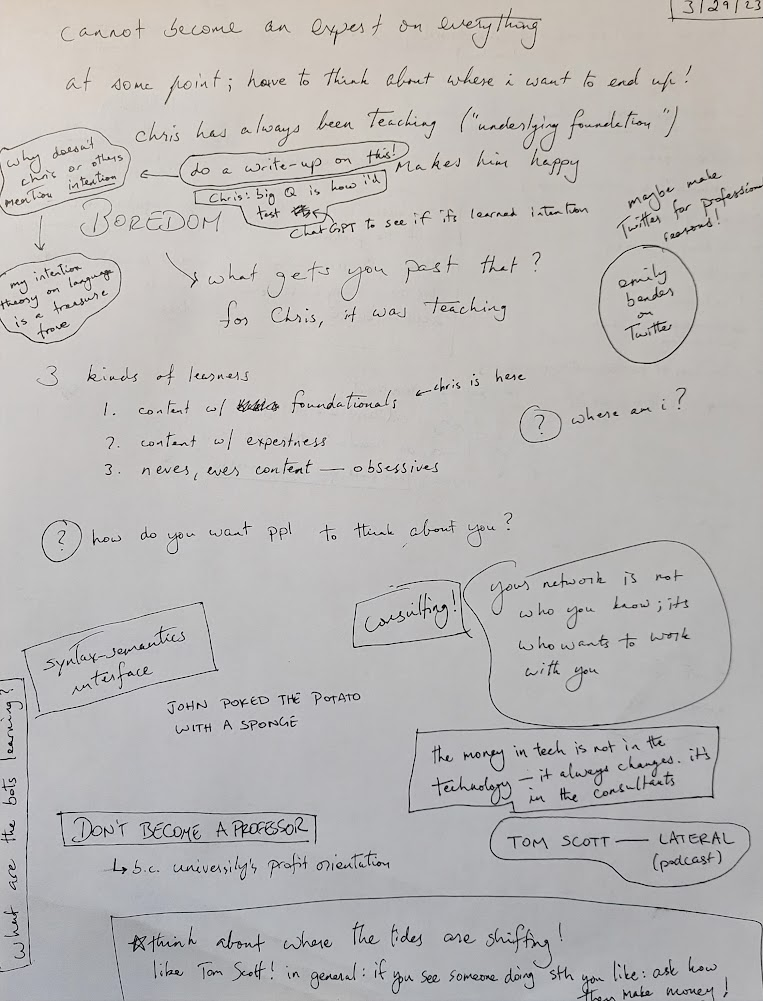 3/29/23
cannot become an expert on everything
at some point; have to think about where i want to end up!
chris has always been teaching ("underlying foundation")
makes him happy
why doesn't
chris or others
mention intention
do a write-up on this!
Chris: big Q is how i'd
test
ChatGPT to see if its learned intention
maybe make
Twitter for professional
reasons!
BOREDOM
my intention
theory on language
is a treasure
trove
what gets you past that?
for Chris, it was teaching
emily
bender
on
Twitter
3 kinds of learners
1. content w/ foundationals ← chris is here
2. content w/ expertness
3. never, ever content — obsessives
? where am i?
? how do you want ppl to think about you?
consulting!
your network is not
who you know; its
who wants to work
with you
syntax-semantics
interface
JOHN POKED THE POTATO
WITH A SPONGE
What are the bots learning?
the money in tech is not in the
technology — it always changes. it's
in the consultants
DON'T BECOME A PROFESSOR
↳ b.c. university's profit orientation
TOM SCOTT — LATERAL
(podcast)
☆think about where the tides are shifting!
like Tom Scott! in general: if you see someone doing sth you like: ask how
they make money!